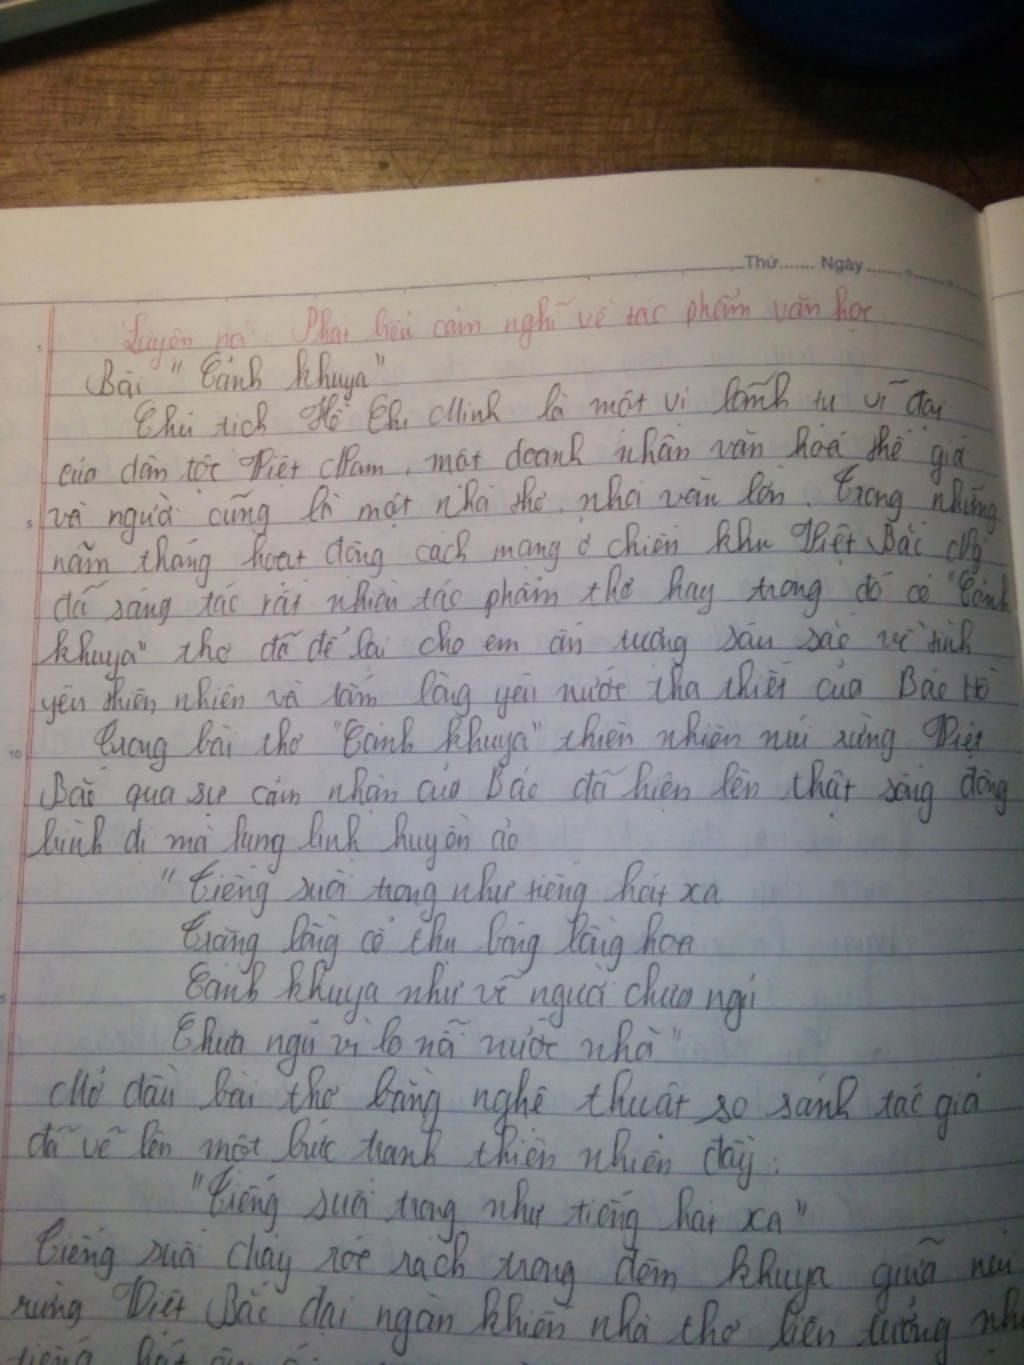 Thứ....... Ngày.......
Luyện nói: Phát biểu cảm nghĩ về tác phẩm văn học
Bài "Cảnh khuya"
Chủ tịch Hồ Chí Minh là một vị lãnh tụ vĩ đại
của dân tộc Việt Nam, một doanh nhân văn hoá thế giới
và người cũng là một nhà thơ, nhà văn lớn. Trong những
năm tháng hoạt động cách mạng ở chiến khu Việt Bắc
đã sáng tác rất nhiều tác phẩm thơ hay trong đó có "Cảnh
khuya" thơ đã để lại cho em ấn tượng sâu sắc về tình
yêu thiên nhiên và tấm lòng yêu nước tha thiết của Bác Hồ
Trong bài thơ "Cảnh khuya" thiên nhiên núi rừng Việt
Bắc qua sự cảm nhận của Bác đã hiện lên thật sống động
bình dị mà lung linh huyền ảo
"Tiếng suối trong như tiếng hát xa
Trăng lồng cổ thụ bóng lồng hoa
Cảnh khuya như vẽ người chưa ngủ
Chưa ngủ vì lo nỗi nước nhà"
Mở đầu bài thơ bằng nghệ thuật so sánh tác giả
đã vẽ lên một bức tranh thiên nhiên đầy:
"Tiếng suối trong như tiếng hát xa"
Tiếng suối chảy róc rách trong đêm khuya giữa núi
rừng Việt Bắc đại ngàn khiến nhà thơ liên tưởng như
tiếng hát